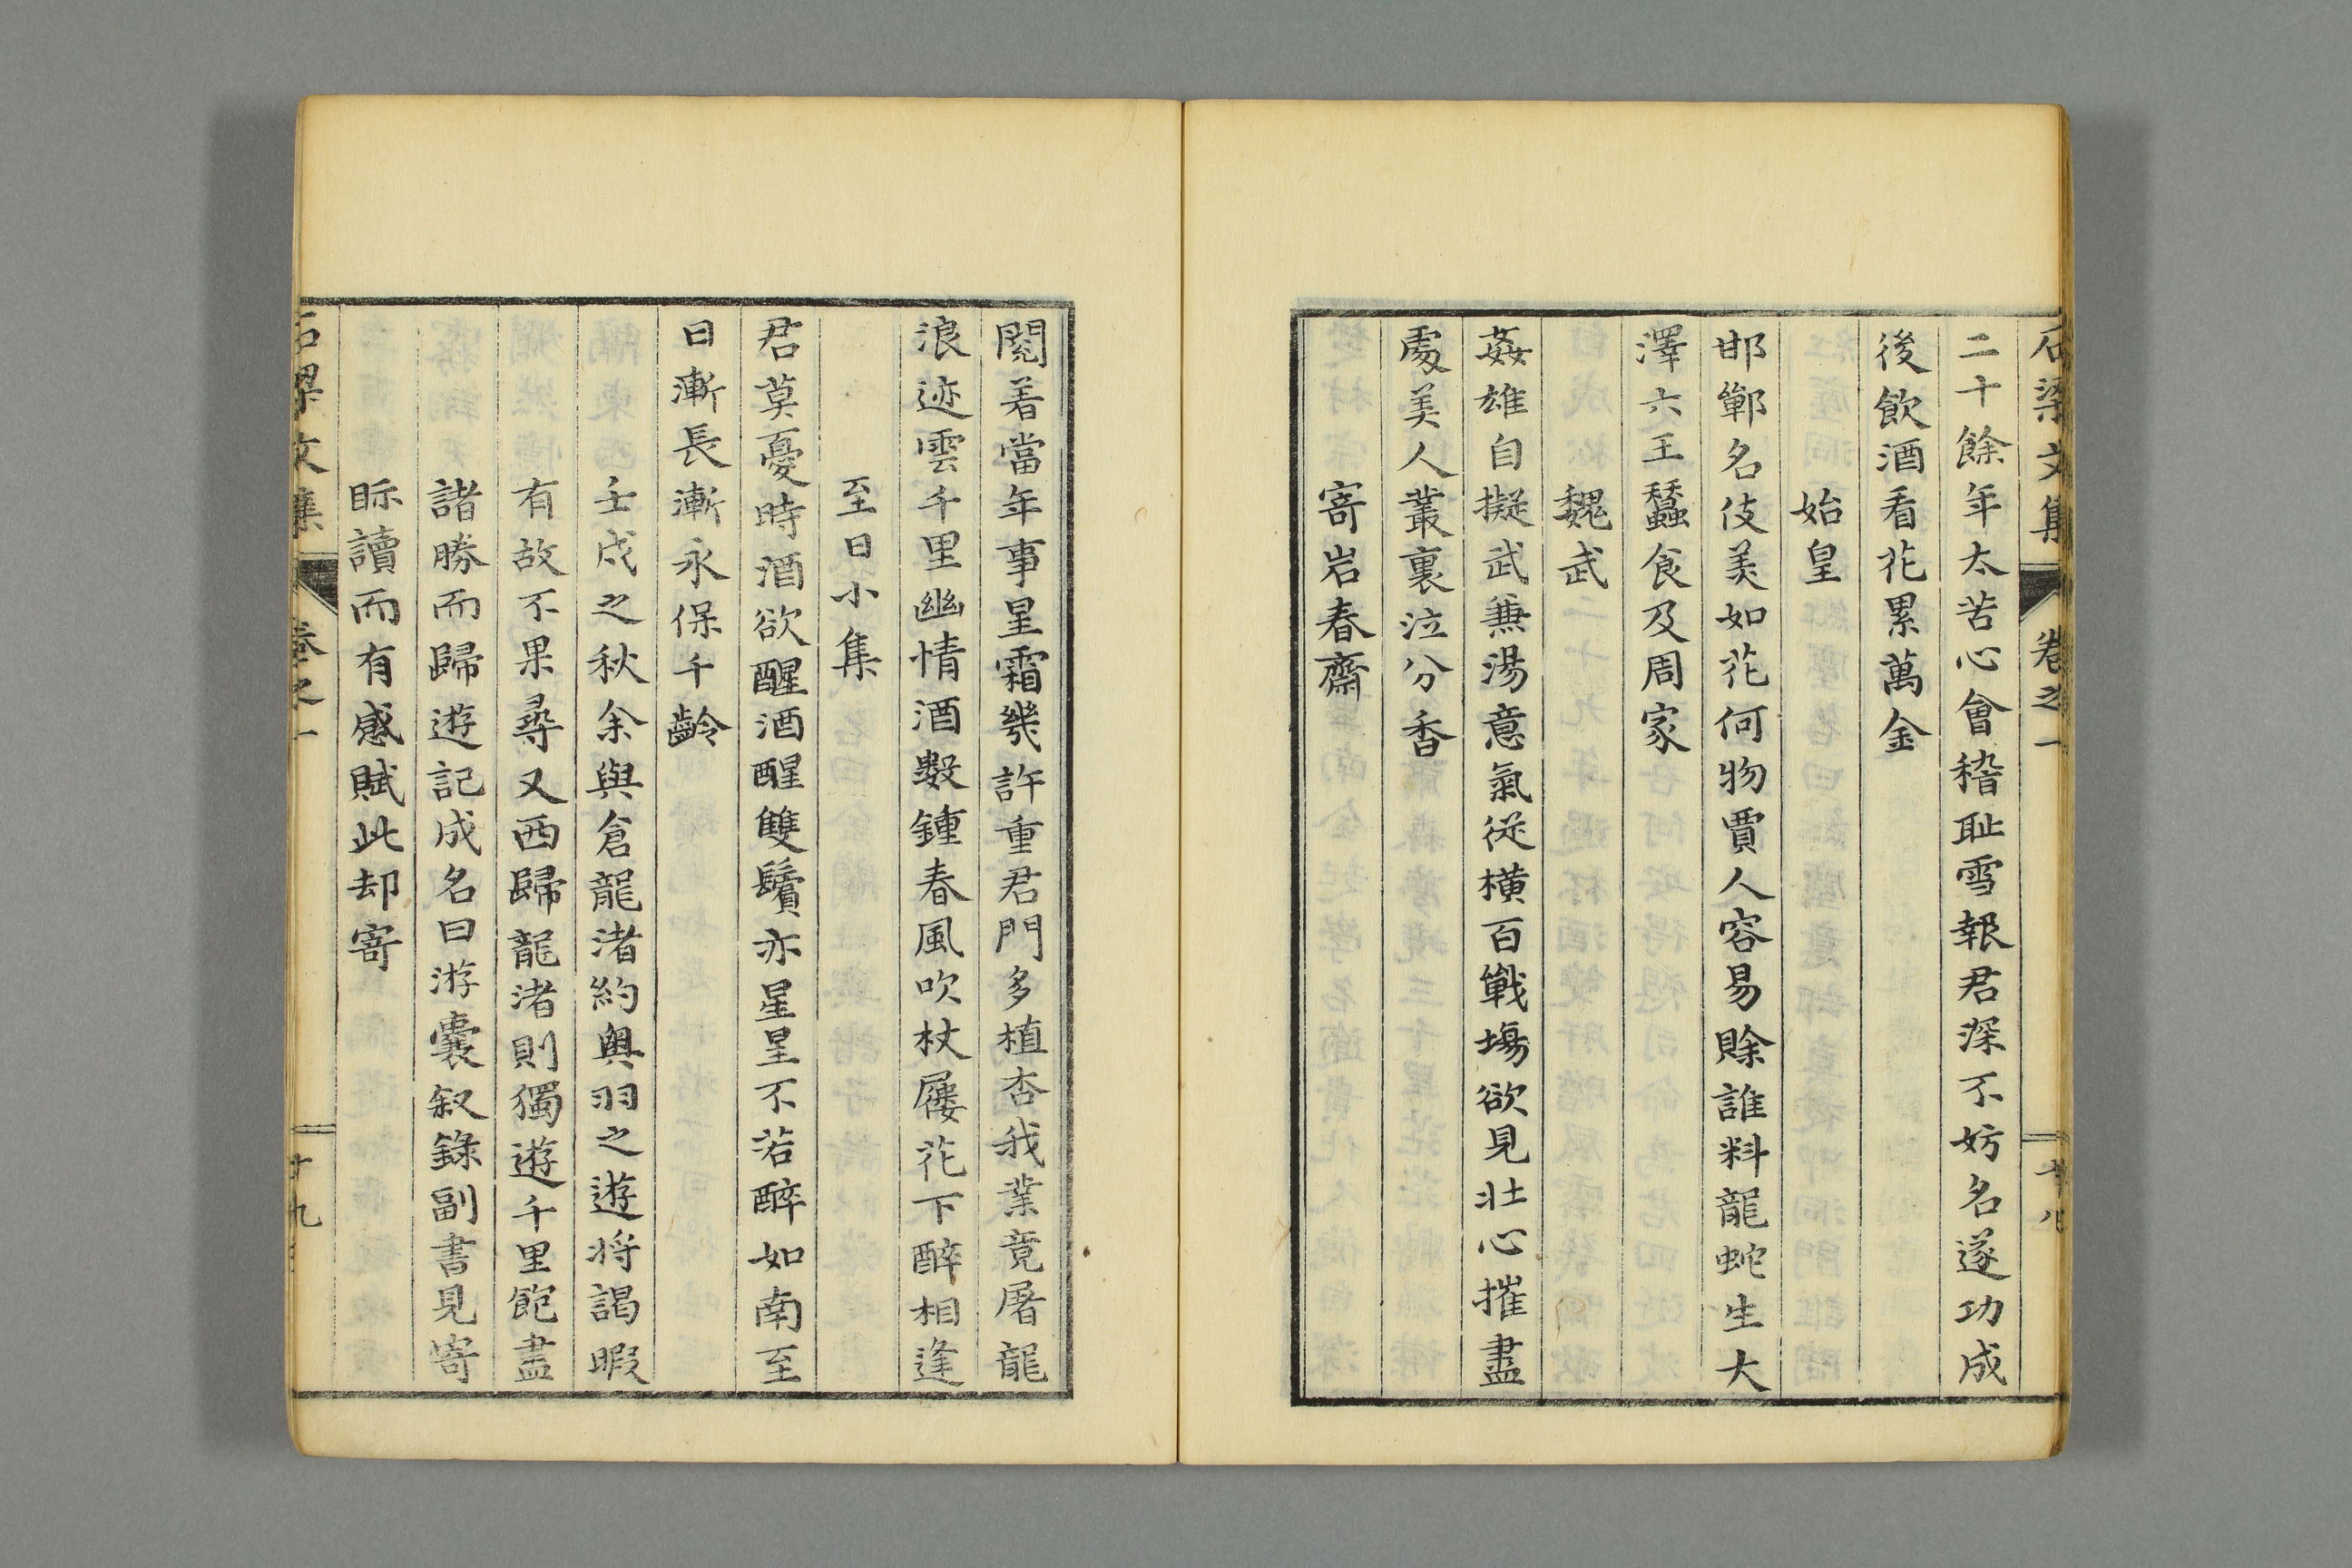 石梁文集 卷之一 十八
二十餘年太苦心會稽恥雪報君深不妨名遂功成
後飲酒看花累萬金
始皇
邯鄲名伎美如花何物賈人容易賖誰料龍蛇生大
澤六王蠶食及周家
魏武
姦雄自擬武兼湯意氣從橫百戰場欲見壯心摧盡
處美人叢裏泣分香
寄岩春齋
閱着當年事星霜幾許重君門多植杏我業竟屠龍
浪迹雲千里幽情酒數鍾春風吹杖屨花下醉相逢
至日小集
君莫憂時酒欲醒酒醒雙鬢亦星星不若醉如南至
日漸長漸永保千齡
壬戌之秋余與倉龍渚約與羽之遊將謁暇
有故不果尋又西歸龍渚則獨遊千里飽盡
諸勝而歸遊記成名曰游囊叙錄副書見寄
眎讀而有感賦此却寄
石梁文集 卷之一 十九